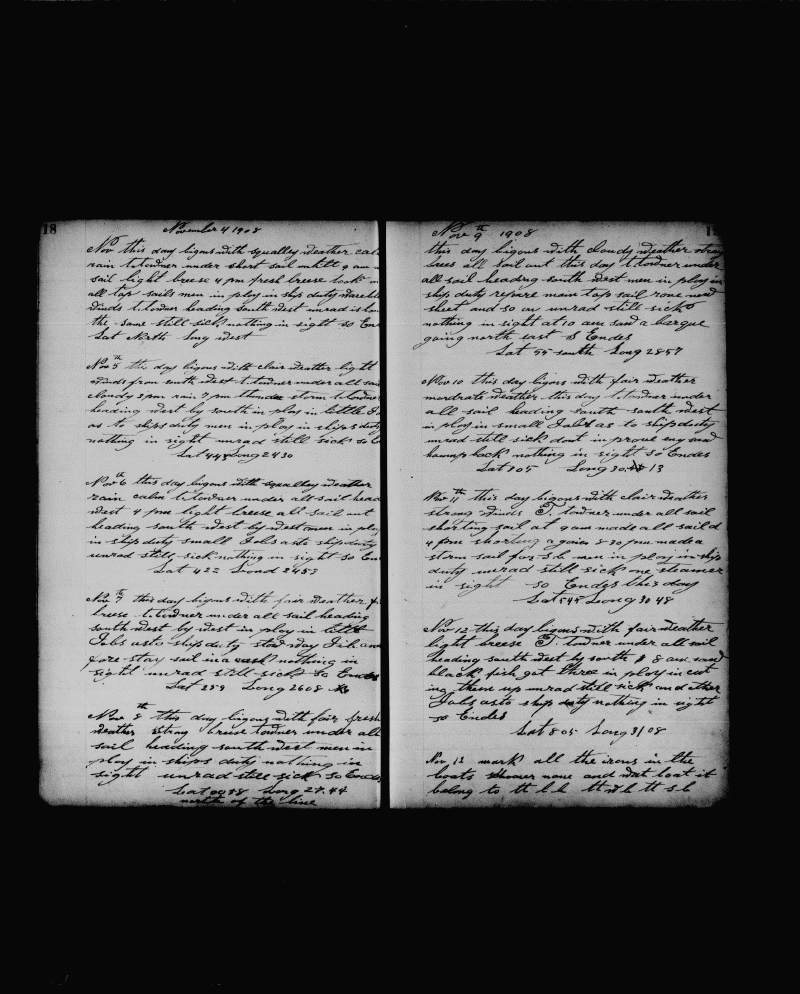 18
November 4 1908
Nov this day bigons with squalley weather cal
rain T. towner under short sail untill 9 am
sail light breese 4 pm fresh breese took in
all top sails men in ploy in ship duty
winds T. towner heading South west unrad is
the same still sick nothing in sight so En
Lat North Long west
Nov 5th this day bigons with clair weather light
winds from south west T. towner under all sail
cloudy 3 pm rain 7 pm thunder storm T. towner
heading west by south in ploy in little J
as to ships duty men in ploy in ships duty
nothing in sight unrad still sick so E
Lat Long 2430
Nov 6th this day bigons with squalley weather
rain calm T. towner under all sail head
west 4 pm light breese all sail out
heading south west by west men in ploy
in ship duty small Jobs as to ship duty
unrad still sick nothing in sight so En
Lat 422 Lond 2453
Nov 7th this day bigons with fair weather f
breese T. towner under all sail heading
south west by west in ploy in little
Jobs as to ships duty stow way Jib and
fore stay sail in a nothing in
sight unrad still sick so Endes
Lat 259 Long 2608
Nov 8th this day bigons with fair fresh
weather strong breese towner under all
sail heading south west men in
ploy in ships duty nothing in
sight unrad still sick so Endes
Lat 0058 Long 27.44
north of the line
Nov 9th 1908
this day bigons with cloudy weather strong
brees all sail out this day T. towner under
all sail heading south west men in ploy in
ship duty repare main top sail rone new
sheet and so on unrad still sick
nothing in sight at 10 am saw a barque
going north east S Endes
Lat 55 south Long 2857
Nov 10 this day bigons with fair weather
mordrate weather this day T. towner under
all sail heading south south west
in ploy in small Jobs as to ship duty
unrad still sick dont in prove eny
back nothing in sight so Endes
Lat 305 Long 30 13
Nov 11th this day bigons with clair weather
strong winds T. towner under all sail
shorting sail at 9 am made all sail
4 pm shorting again 8 30 pm made a
storm sail for men in ploy in ship
duty unrad still sick one steamer
in sight so Endes this day
Lat 545 Long 30 48
Nov 12 this day bigons with fair weather
light breese T. towner under all sail
heading south west by south 8 am saw
black fish get three in ploy in cut
ing them up unrad still sick and other
Jobs as to ship duty nothing in sight
so Endes
Lat 805 Long 3108
Nov 13 mark all the irons in the
boats name and wat boat it
belong to